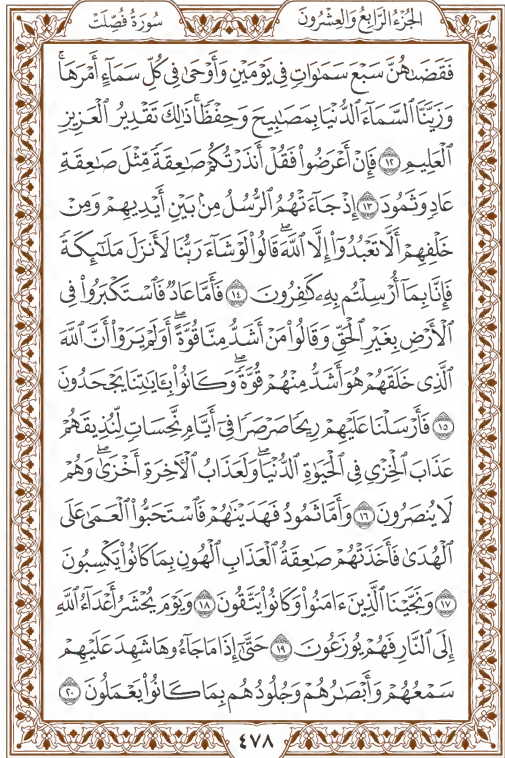 الجُزْءُ الرَّابِعُ وَالعِشْرُونَ
سُورَةُ فُصِّلَتْ
فَقَضَىٰهُنَّ سَبْعَ سَمَٰوَاتٍ فِي يَوْمَيْنِ وَأَوْحَىٰ فِي كُلِّ سَمَآءٍ أَمْرَهَاۚ
وَزَيَّنَّا ٱلسَّمَآءَ ٱلدُّنْيَا بِمَصَٰبِيحَ وَحِفْظًاۚ ذَٰلِكَ تَقْدِيرُ ٱلْعَزِيزِ
ٱلْعَلِيمِ ١٢ فَإِنْ أَعْرَضُوا۟ فَقُلْ أَنذَرْتُكُمْ صَٰعِقَةً مِّثْلَ صَٰعِقَةِ
عَادٍ وَثَمُودَ ١٣ إِذْ جَآءَتْهُمُ ٱلرُّسُلُ مِنۢ بَيْنِ أَيْدِيهِمْ وَمِنْ
خَلْفِهِمْ أَلَّا تَعْبُدُوٓا۟ إِلَّا ٱللَّهَۖ قَالُوا۟ لَوْ شَآءَ رَبُّنَا لَأَنزَلَ مَلَٰٓئِكَةً
فَإِنَّا بِمَآ أُرْسِلْتُم بِهِۦ كَٰفِرُونَ ١٤ فَأَمَّا عَادٌ فَٱسْتَكْبَرُوا۟ فِي
ٱلْأَرْضِ بِغَيْرِ ٱلْحَقِّ وَقَالُوا۟ مَنْ أَشَدُّ مِنَّا قُوَّةًۖ أَوَلَمْ يَرَوْا۟ أَنَّ ٱللَّهَ
ٱلَّذِي خَلَقَهُمْ هُوَ أَشَدُّ مِنْهُمْ قُوَّةًۖ وَكَانُوا۟ بِـَٔايَٰتِنَا يَجْحَدُونَ
١٥ فَأَرْسَلْنَا عَلَيْهِمْ رِيحًا صَرْصَرًا فِيٓ أَيَّامٍ نَّحِسَاتٍ لِّنُذِيقَهُمْ
عَذَابَ ٱلْخِزْيِ فِي ٱلْحَيَوٰةِ ٱلدُّنْيَاۖ وَلَعَذَابُ ٱلْءَاخِرَةِ أَخْزَىٰۖ وَهُمْ
لَا يُنصَرُونَ ١٦ وَأَمَّا ثَمُودُ فَهَدَيْنَٰهُمْ فَٱسْتَحَبُّوا۟ ٱلْعَمَىٰ عَلَى
ٱلْهُدَىٰ فَأَخَذَتْهُمْ صَٰعِقَةُ ٱلْعَذَابِ ٱلْهُونِ بِمَا كَانُوا۟ يَكْسِبُونَ
١٧ وَنَجَّيْنَا ٱلَّذِينَ ءَامَنُوا۟ وَكَانُوا۟ يَتَّقُونَ ١٨ وَيَوْمَ يُحْشَرُ أَعْدَآءُ ٱللَّهِ
إِلَى ٱلنَّارِ فَهُمْ يُوزَعُونَ ١٩ حَتَّىٰٓ إِذَا مَا جَآءُوهَا شَهِدَ عَلَيْهِمْ
سَمْعُهُمْ وَأَبْصَٰرُهُمْ وَجُلُودُهُم بِمَا كَانُوا۟ يَعْمَلُونَ ٢٠
٤٧٨